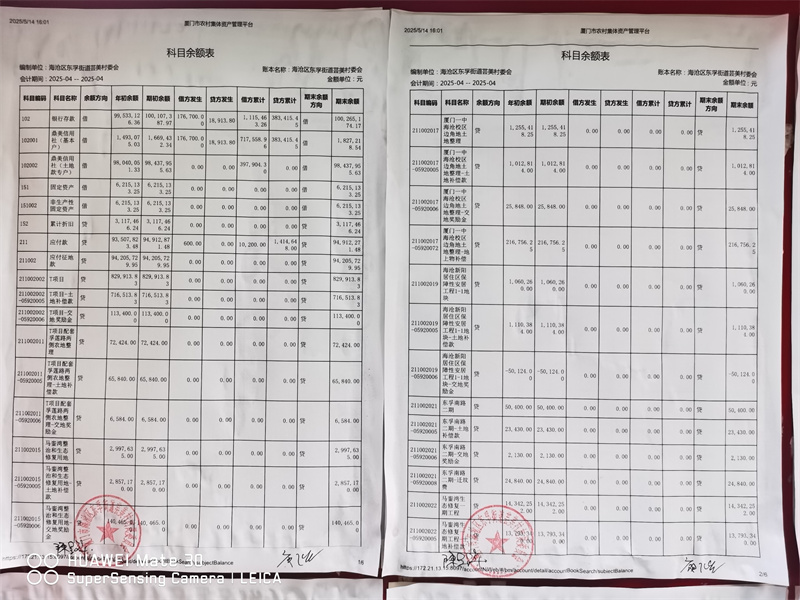 2025/5/14 16:01
厦门市农村集体资产管理平台
科目余额表
编制单位：海沧区东孚街道芸美村委会
账本名称：海沧区东孚街道芸美村委会
会计期间：2025-04 -- 2025-04
金额单位：元
科目编码 科目名称 余额方向 年初余额 期初余额 借方发生 贷方发生 借方累计 贷方累计 期末余额方向 期末余额
102 银行存款 借 99,533,126.36 100,107,387.97 176,700.00 18,913.80 1,115,463.26 383,415.45 借 100,265,174.17
102001 鼎美信用社（基本户） 借 1,493,075.03 1,669,432.34 176,700.00 18,913.80 717,558.96 383,415.45 借 1,827,218.54
102002 鼎美信用社（土地款专户） 借 98,040,051.33 98,437,955.63 0.00 0.00 397,904.30 0.00 借 98,437,955.63
151 固定资产 借 6,215,133.25 6,215,133.25 0.00 0.00 0.00 0.00 借 6,215,133.25
151002 非生产性固定资产 借 6,215,133.25 6,215,133.25 0.00 0.00 0.00 0.00 借 6,215,133.25
152 累计折旧 贷 3,117,466.24 3,117,466.24 0.00 0.00 0.00 0.00 贷 3,117,466.24
211 应付款 贷 93,507,823.48 94,912,871.48 600.00 0.00 10,200.00 1,414,648.00 贷 94,912,271.48
211002 应付征地款 贷 94,205,729.95 94,205,729.95 0.00 0.00 0.00 0.00 贷 94,205,729.95
211002002 T项目 贷 829,913.83 829,913.83 0.00 0.00 0.00 0.00 贷 829,913.83
211002002-05920005 T项目-土地补偿款 贷 716,513.83 716,513.83 0.00 0.00 0.00 0.00 贷 716,513.83
211002002-05920006 T项目-交地奖励金 贷 113,400.00 113,400.00 0.00 0.00 0.00 0.00 贷 113,400.00
211002011 T项目配套孚莲路两侧农地整理 贷 72,424.00 72,424.00 0.00 0.00 0.00 0.00 贷 72,424.00
211002011-05920005 T项目配套孚莲路两侧农地整理-土地补偿款 贷 65,840.00 65,840.00 0.00 0.00 0.00 0.00 贷 65,840.00
211002011-05920006 T项目配套孚莲路两侧农地整理-交地奖励金 贷 6,584.00 6,584.00 0.00 0.00 0.00 0.00 贷 6,584.00
211002015 马銮湾整治和生态修复用地 贷 2,997,635.00 2,997,635.00 0.00 0.00 0.00 0.00 贷 2,997,635.00
211002015-05920005 马銮湾整治和生态修复用地-土地补偿款 贷 2,857,170.00 2,857,170.00 0.00 0.00 0.00 0.00 贷 2,857,170.00
211002015-05920006 马銮湾整治和生态修复用地-交地奖励金 贷 140,465.00 140,465.00 0.00 0.00 0.00 0.00 贷 140,465.00
HUAWEI Mate 30
SuperSensing Camera | LEICA
2025/5/14 16:01
厦门市农村集体资产管理平台
科目余额表
编制单位：海沧区东孚街道芸美村委会
账本名称：海沧区东孚街道芸美村委会
会计期间：2025-04 -- 2025-04
金额单位：元
科目编码 科目名称 余额方向 年初余额 期初余额 借方发生 贷方发生 借方累计 贷方累计 期末余额方向 期末余额
211002017 厦门一中海沧校区边角地土地整理 贷 1,255,418.25 1,255,418.25 0.00 0.00 0.00 0.00 贷 1,255,418.25
211002017-05920005 厦门一中海沧校区边角地土地整理-土地补偿款 贷 1,012,814.00 1,012,814.00 0.00 0.00 0.00 0.00 贷 1,012,814.00
211002017-05920006 厦门一中海沧校区边角地土地整理-交地奖励金 贷 25,848.00 25,848.00 0.00 0.00 0.00 0.00 贷 25,848.00
211002017-05920072 厦门一中海沧校区边角地土地整理-地上物补偿 贷 216,756.25 216,756.25 0.00 0.00 0.00 0.00 贷 216,756.25
211002019 海沧新阳居住区保障性安居工程1-1地块 贷 1,060,260.00 1,060,260.00 0.00 0.00 0.00 0.00 贷 1,060,260.00
211002019-05920005 海沧新阳居住区保障性安居工程1-1地块-土地补偿款 贷 1,110,384.00 1,110,384.00 0.00 0.00 0.00 0.00 贷 1,110,384.00
211002019-05920006 海沧新阳居住区保障性安居工程1-1地块-交地奖励金 贷 -50,124.00 -50,124.00 0.00 0.00 0.00 0.00 贷 -50,124.00
211002021 东孚南路二期 贷 50,400.00 50,400.00 0.00 0.00 0.00 0.00 贷 50,400.00
211002021-05920005 东孚南路二期-土地补偿款 贷 23,430.00 23,430.00 0.00 0.00 0.00 0.00 贷 23,430.00
211002021-05920006 东孚南路二期-交地奖励金 贷 2,130.00 2,130.00 0.00 0.00 0.00 0.00 贷 2,130.00
211002021-05920008 东孚南路二期-迁坟费 贷 24,840.00 24,840.00 0.00 0.00 0.00 0.00 贷 24,840.00
211002022 马銮湾生态修复一期工程 贷 14,342,252.00 14,342,252.00 0.00 0.00 0.00 0.00 贷 14,342,252.00
211002022-05920005 马銮湾生态修复一期工程 贷 13,793,340.00 13,793,340.00 0.00 0.00 0.00 0.00 贷 13,793,340.00
2/6